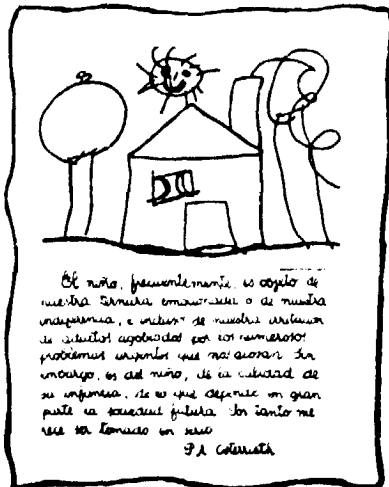 El niño, frecuentemente, es objeto de
nuestra ternura emocional o de nuestra
indiferencia, e incluso de nuestra irritación
de adultos agobiados por los numerosos
problemas urgentes que nos acosan Sin
embargo, es del niño, de la calidad de
su infancia, de lo que depende en gran
parte la sociedad futura Por tanto me
rece ser tomado en serio